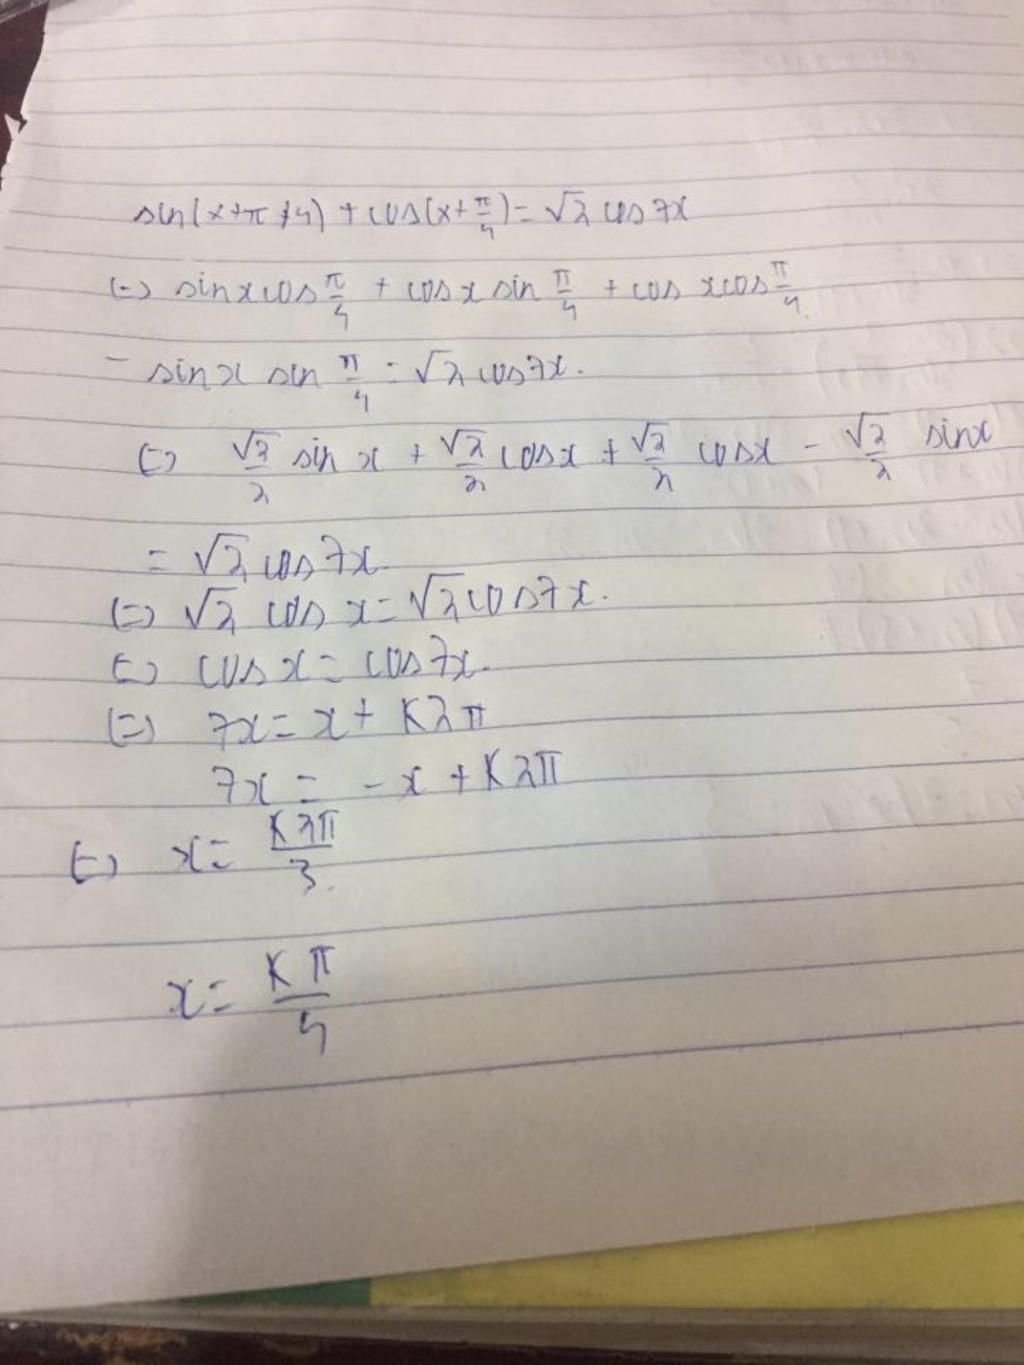 sin(x+π/4) + cos(x+π/4) = √2 cos7x
(=) sinxcosπ/4 + cosx sin π/4 + cos xcosπ/4
- sinx sin π/4 = √2 cos7x.
(=) √2/2 sin x + √2/2 cosx + √2/2 cosx - √2/2 sinx
= √2 cos7x.
(=) √2 cos x = √2cos7x.
(=) cosx = cos7x.
(=) 7x = x + K2π
7x = -x + K2π
(=) x = K2π/3.
x = Kπ/4